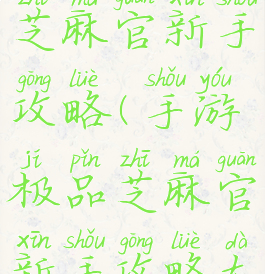 zhī má guān xīn shǒu
芝麻官新手
gōng lüè shǒu yóu
攻略(手游
jí pǐn zhī má guān
极品芝麻官
xīn shǒu gōng lüè dà
新手攻略大